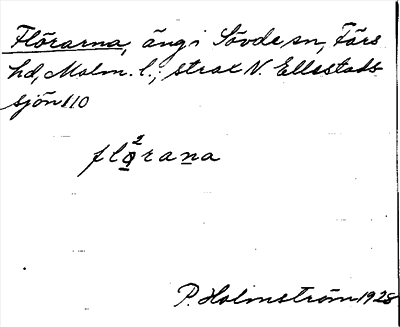 Flörarna, äng i Sövde sn, Färs
hd, Malm. l.; strax N. Ellestads-
sjön 110
flǫ²rana
P. Holmström 1928